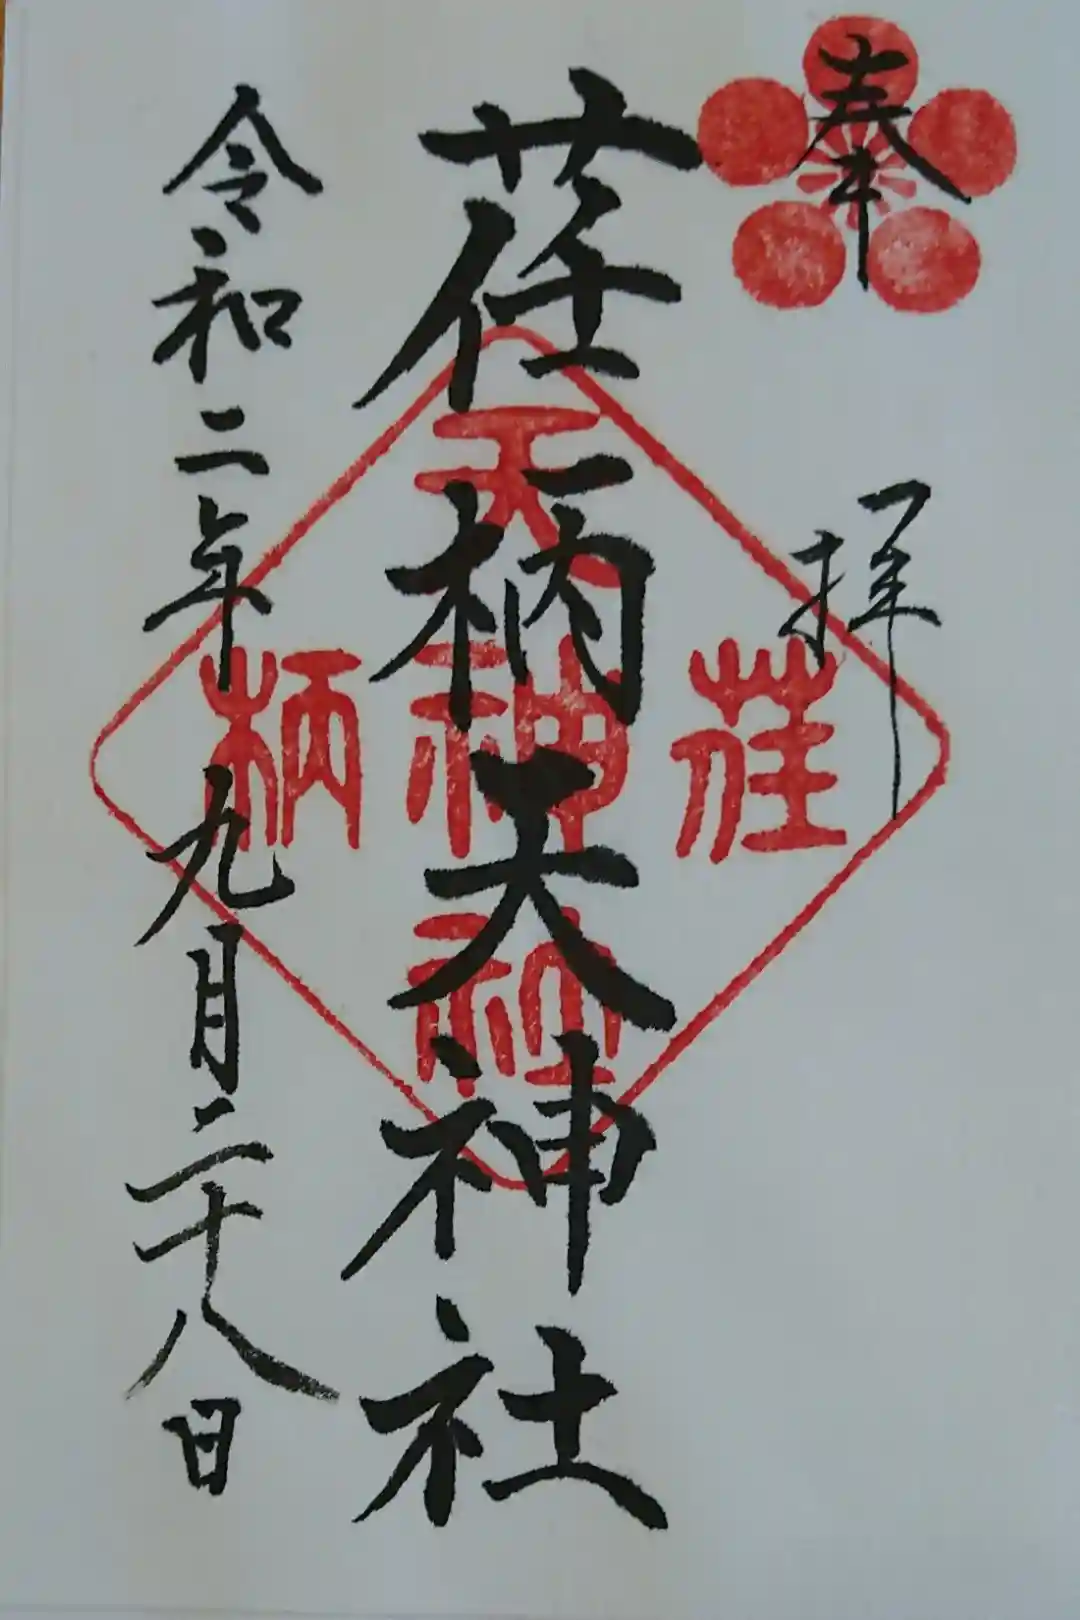 奉拝
荏柄天神社
荏柄天神社
令和二年九月二十八日